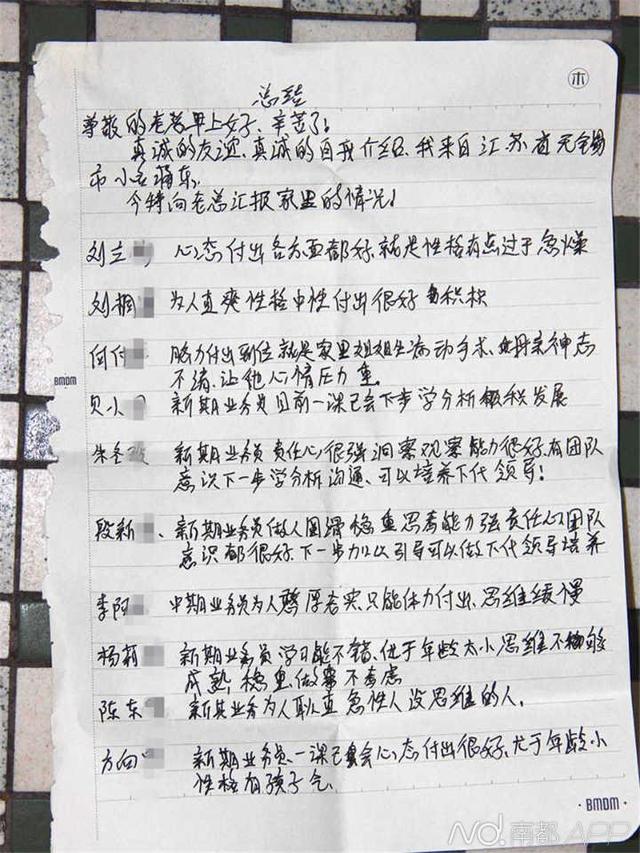 木
总结
尊敬的老总早上好、辛苦了！
真诚的友谊、真诚的自我介绍、我来自江苏省无锡
市小
今特向老总汇报家里的情况！
刘立 心态付出各方面都好、就是性格有点过于急燥
刘桐 为人直爽性格中性付出很好 积极
何付 脑力付出到位就是家里姐姐生病动手术、母亲神志
不清、让他心情压力重。
欠小 新期业务员目前一课已会下步学分析 积发展
朱冬 新期业务员 责任心很强洞察观察能力很好、有团队
意识下一步学分析沟通、可以培养下代领导！
段新 、新期业务员做人圆滑稳重思考能力强责任心团队
意识都很好、下一步加以引导可以做下代领导培养
李阿 中期业务员为人憨厚老实、只能体力付出、思维缓慢
杨莉 新期业务员 学习能不错、优于年龄太小思维不够
成熟 稳重做事不考虑
陈东 新期业务为人耿直 急性人 没思维的人.
BMDM
方向 新期业务员、一课已会心态付出很好、尤于年龄小
性格有孩子气.
BMDM
N 南都APP